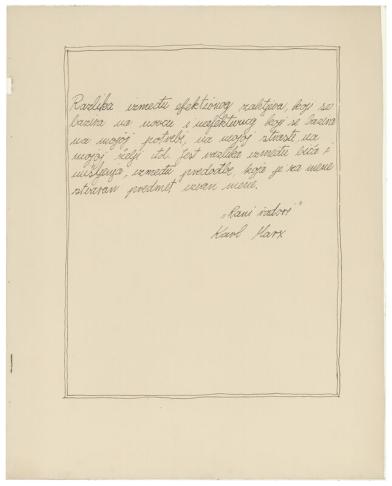 Razlika između efektivnog zahtjeva, koji se
bazira na novcu i neefektivnog koji se bazira
na mojoj potrebi, na mojoj strasti, na
mojoj želji itd. jest razlika između bića i
mišljenja, između predodžbe, koja je za mene
stvaran predmet izvan mene.
„Rani radovi"
Karl Marx